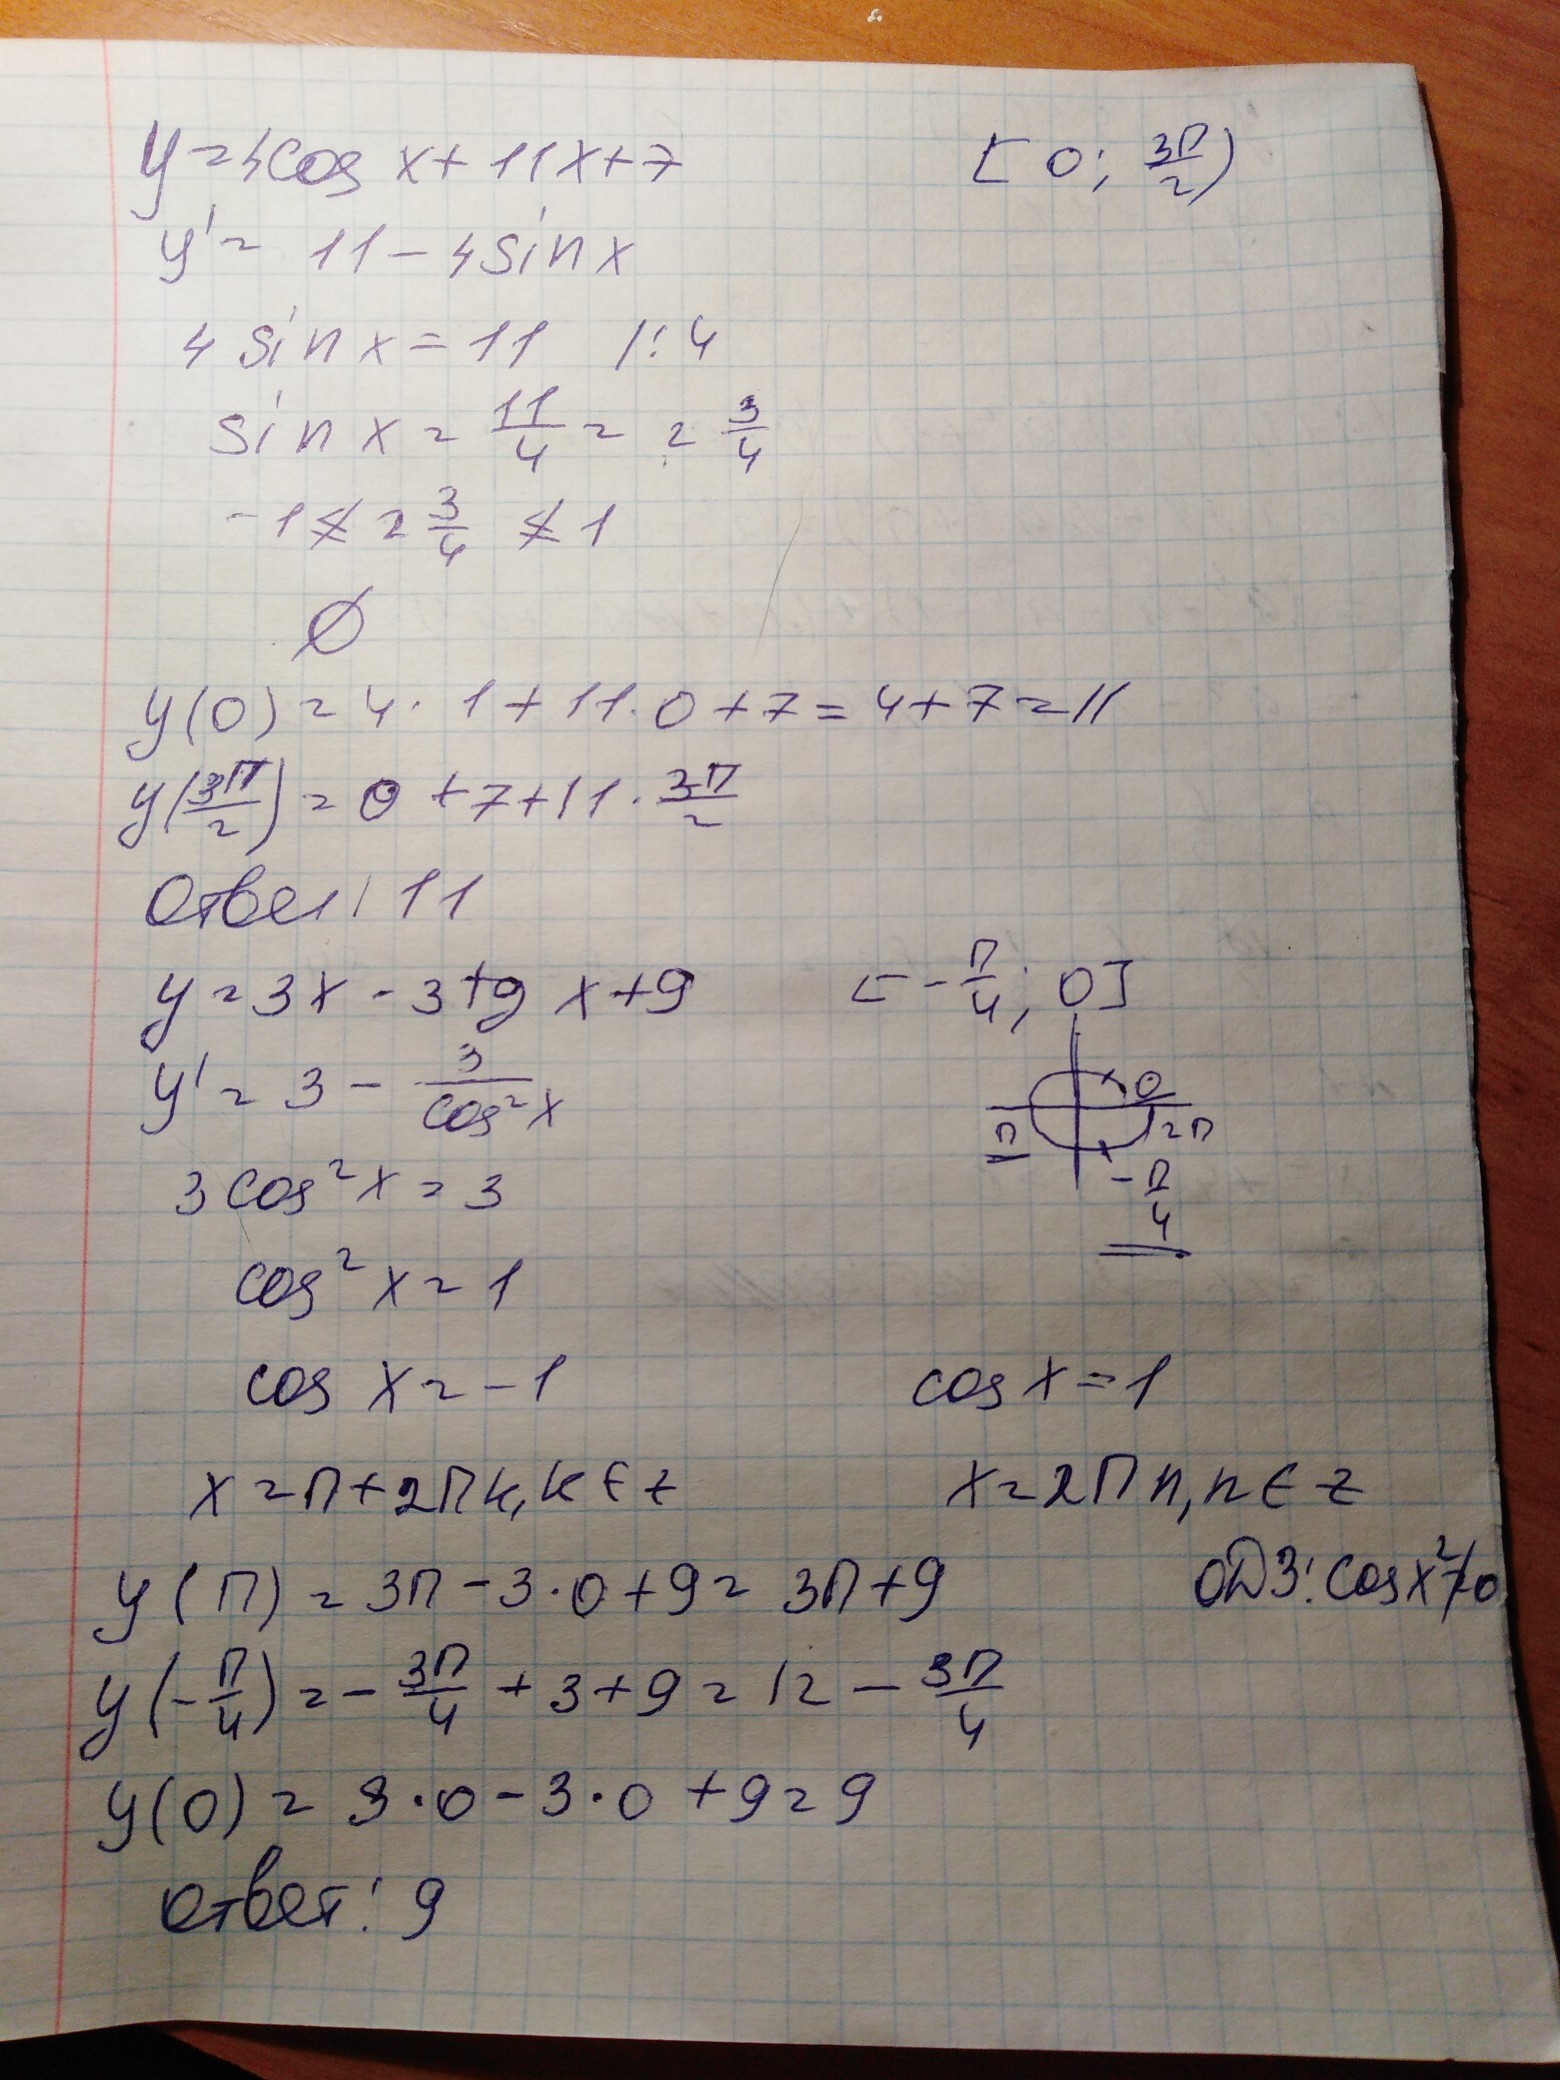 y = 4cos x + 11x + 7 [0; 3π/2)
y' = 11 - 4sin x
4 sin x = 11 |:4
sin x = 11/4 = 2 3/4
-1 ≰ 2 3/4 ≰ 1
∅
y(0) = 4·1 + 11·0 + 7 = 4 + 7 = 11
y(3π/2) = 0 + 7 + 11·3π/2
Ответ: 11
y = 3x - 3tg x + 9 [-π/4; 0]
y' = 3 - 3/cos²x
0
π 2π
-π/4
3cos²x = 3
cos²x = 1
cos x = -1 cos x = 1
x = π + 2πk, k ∈ z x = 2πn, n ∈ z
ОДЗ: cos x² ≠ 0
y(π) = 3π - 3·0 + 9 = 3π + 9
y(-π/4) = -3π/4 + 3 + 9 = 12 - 3π/4
y(0) = 3·0 - 3·0 + 9 = 9
Ответ: 9